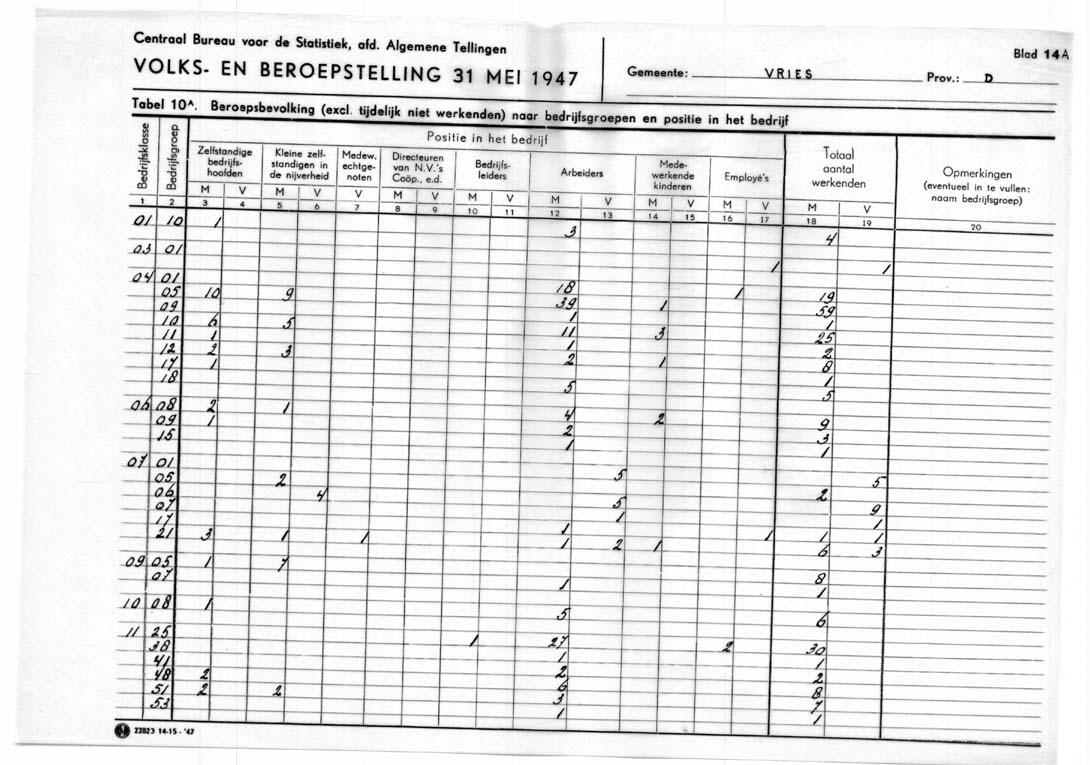 Centraal Bureau voor de Statistiek, afd. Algemene Tellingen
VOLKS- EN BEROEPSTELLING 31 MEI 1947
Gemeente: VRIES Prov.: D
Blad 14A
Tabel 10A. Beroepsbevolking (excl. tijdelijk niet werkenden) naar bedrijfsgroepen en positie in het bedrijf
Bedrijfsklasse
Bedrijfsgroep
Positie in het bedrijf
Zelfstandige
bedrijfs-
hoofden
Kleine zelf-
standigen in
de nijverheid
Medew.
echtge-
noten
Directeuren
van N.V.'s
Coöp., e.d.
Bedrijfs-
leiders
Arbeiders
Mede-
werkende
kinderen
Employé's
Totaal
aantal
werkenden
Opmerkingen
(eventueel in te vullen:
naam bedrijfsgroep)
M V M V V M V M V M V M V M V M V
1 2 3 4 5 6 7 8 9 10 11 12 13 14 15 16 17 18 19 20
01 10 1 3 4
03 01 1 1
04 01 18 1 19
05 10 9 39 1 59
09 1 1
10 6 5 11 3 25
11 1 1 2
12 2 3 2 1 8
17 1 1
18 5 5
06 08 2 1 4 2 9
09 1 2 3
15 1 1
07 01 5 5
05 2 2
06 4 5 9
07 1 1
17 1 1 1 1
21 3 1 1 1 2 1 6 3
09 05 1 7 8
07 1 1
10 08 1 5 6
11 25 1 27 2 30
38 1 1
41 2 2
48 2 6 8
51 2 2 3 7
53 1 1
22823 14-15 - '47